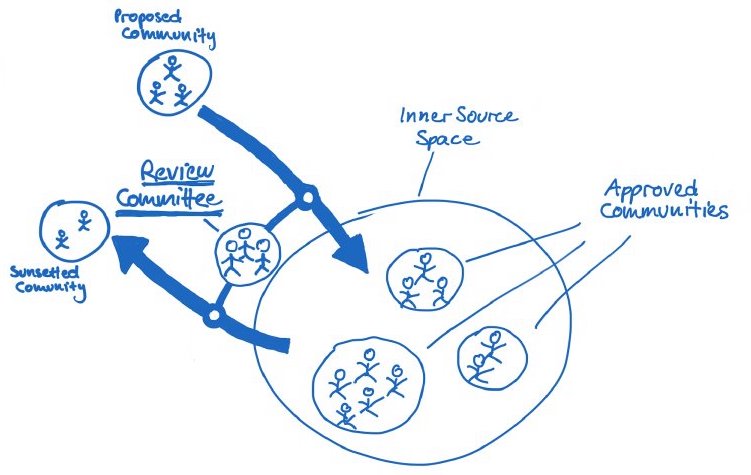 Proposed
Community
Inner Source
Space
Review
Committee
Approved
Communities
Sunsetted
Comunity